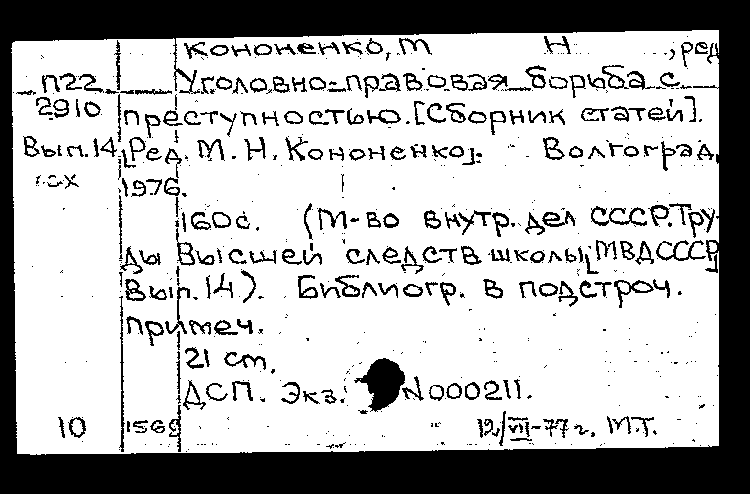 Кононенко, М Н , ред
П22 Уголовно-правовая борьба с
2910 преступностью. [Сборник статей].
Вып. 14 [Ред. М. Н. Кононенко]. Волгоград,
1976.
160с. (М-во внутр. дел СССР. Тру-
ды Высшей следств школы [МВД СССР]
Вып. 14). Библиогр. в подстроч.
примеч.
21 cm.
ДСП. Экз. N000211.
10 1569 12/VII-77 г. М.Т.